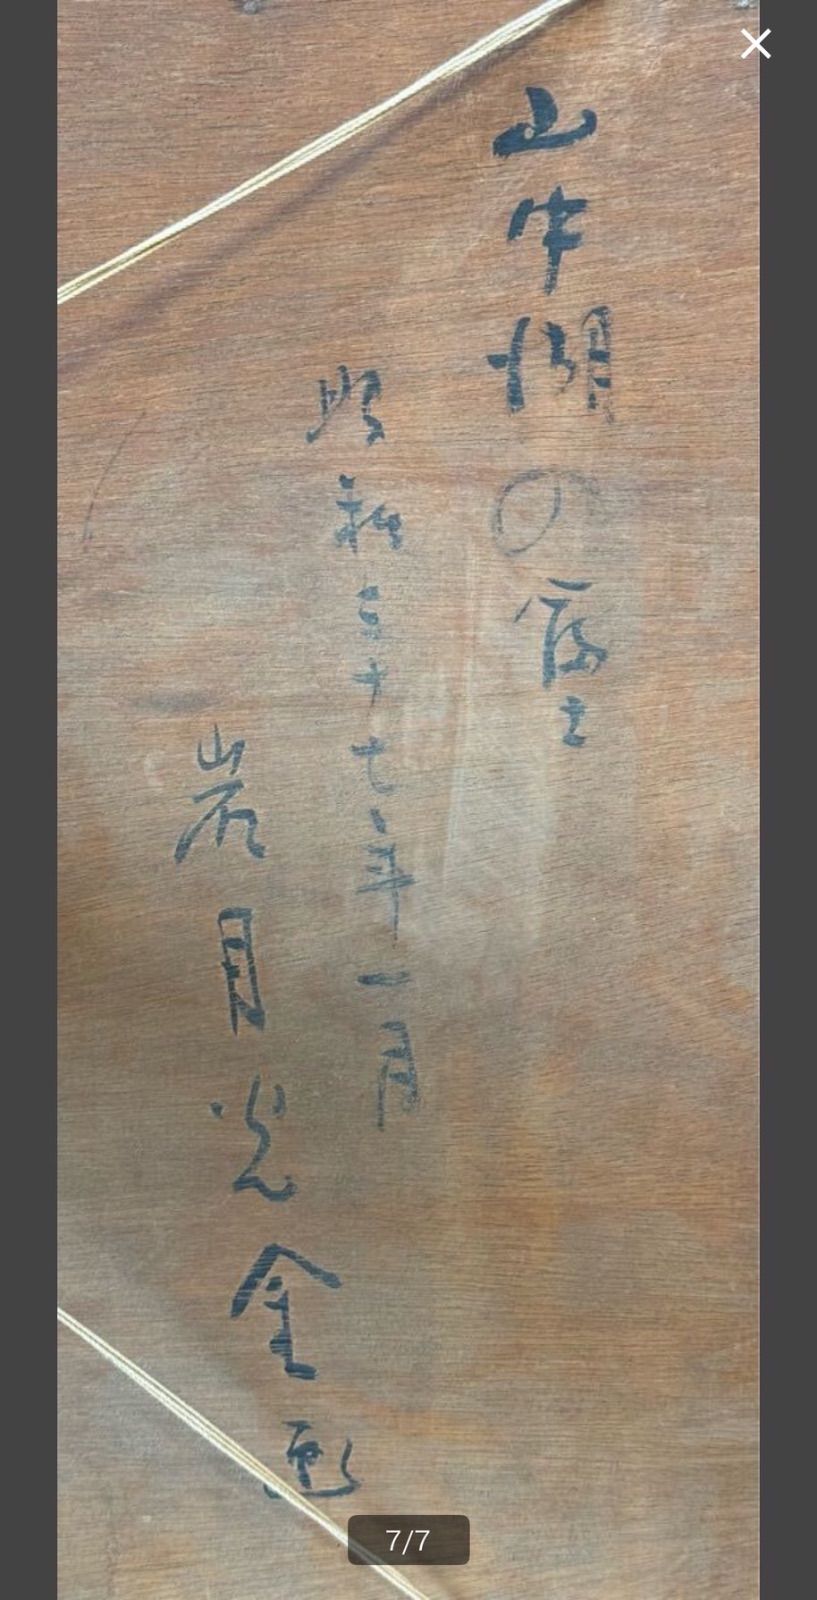 山中湖の富士
昭和三十七年一月
岩月光金画
7/7